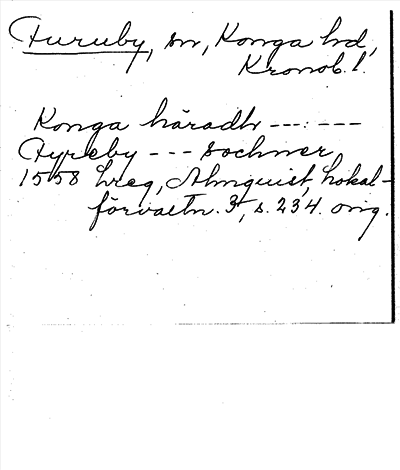 Furuby, sn, Konga hd,
Kronob. l.
Konga häradh ---:---
Fyreby --- sochner
1558 hreg, Almquist, Lokal-
förvaltn. 3, s. 234. orig.